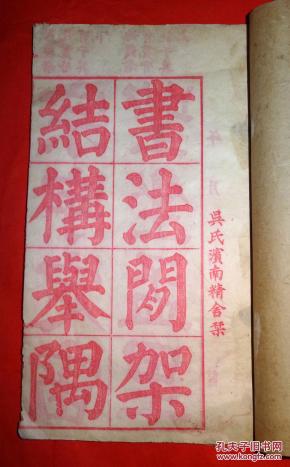 書法閒架
結構舉隅
吳氏濱南精舍栞
年 月
孔夫子旧书网